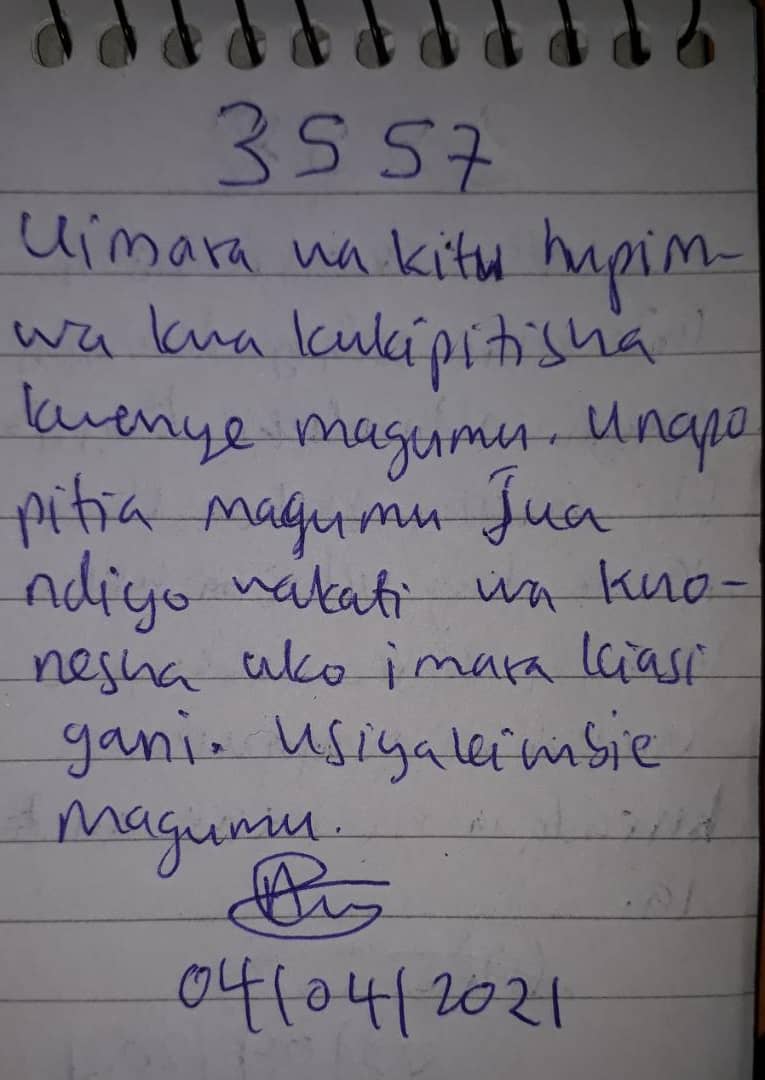 3557
Uimara wa kitu hupim-
wa kwa kukipitisha
kwenye magumu. Unapo
pitia magumu Jua
ndiyo wakati wa kuo-
nesha uko imara kiasi
gani. Usiyakimbie
magumu.
04/04/2021